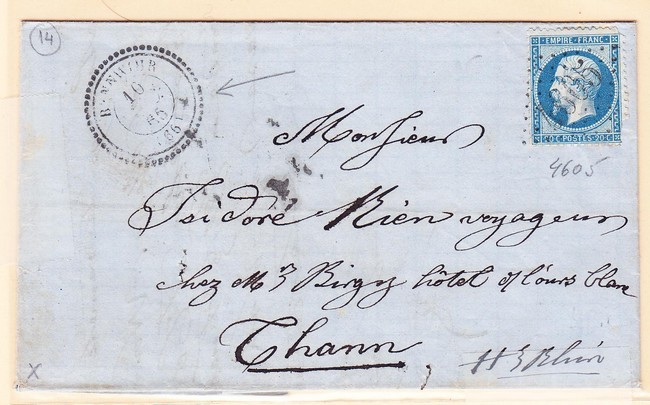 14
BENNHWIHR
16
65
(66)
EMPIRE FRANC
20 C POSTES 20 C
4605
Monsieur
Isidore Kien voyageur
chez Mr Birgy hôtel de l'ours blanc
Thann
Ht Rhin
X